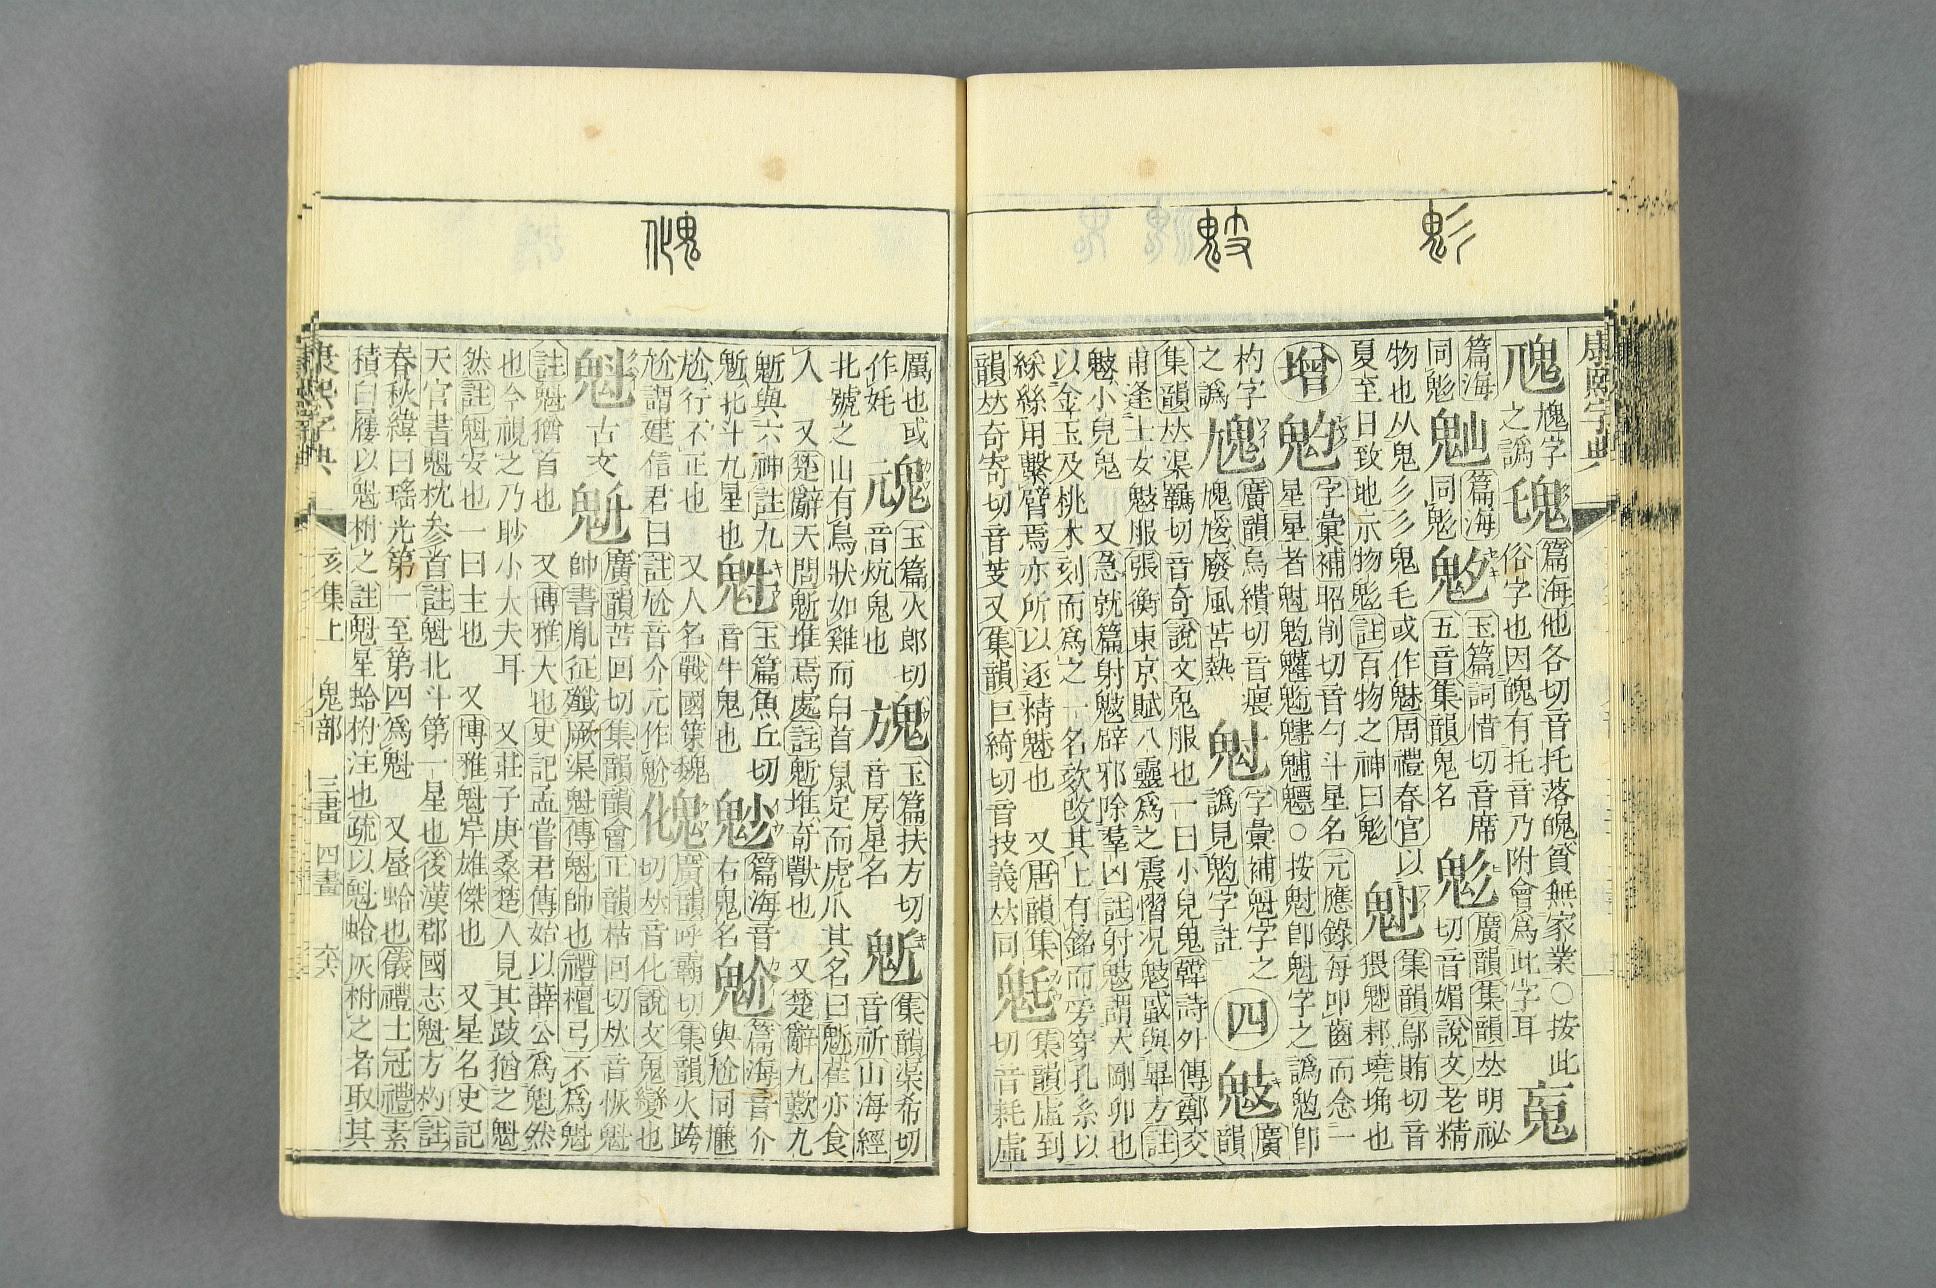 康熙字典
之譌
篇海他各切音托落魄貧無家業○按此
俗字也因魄有托音乃附會爲此字耳
篇海
同鬽
篇海
同鬽
玉篇詞惜切音席
五音集韻鬼名
鬽
廣韻集韻𠀤明祕
切音媚說文老精
物也从鬼彡彡鬼毛或作魅周禮春官以
夏至日致地示物鬽註百物之神曰鬽
集韻鄔賄切音
增
字彙補昭削切音勺斗星名元應錄每叩齒而念一
杓字
之譌
廣韻烏繢切音瘣
廢風苦熱
字彙補魁字之
四
魃
廣
韻
集韻𠀤渠羈切音奇說文鬼服也一曰小兒鬼韓詩外傳鄭交
甫逢士女魃服張衡東京賦八靈爲之震慴況魃蜮與畢方註
魃小兒鬼 又急就篇射魃辟邪除羣凶註射魃謂大剛卯也
以金玉及桃木刻而爲之一名㱾攺其上有銘而旁穿孔系以
綵絲用繫臂焉亦所以逐精魅也 又唐韻集
韻𠀤奇寄切音芰又集韻巨綺切音技義𠀤同
集韻虛到
切音耗虛
厲也或
作㚌
玉篇火郎切
音炕鬼也
玉篇扶方切
音房星名
魁
集韻渠希切
音祈山海經
北號之山有鳥狀如雞而白首鼠足而虎爪其名曰鬿雀亦食
人 又楚辭天問鬿堆焉處註鬿堆奇獸也 又楚辭九歎九
鬿與六神註九
鬿北斗九星也
玉篇魚丘切
音牛鬼也
篇海音
右鬼名
篇海音介
與尬同尲
尬行不正也 又人名戰國策魏
尬謂建信君曰註尬音介元作魀
廣韻呼霸切集韻火跨
切𠀤音化說文鬼變也
魁
古文
廣韻苦回切集韻韻會正韻枯回切𠀤音恢魁
帥書胤征殲厥渠魁傳魁帥也禮檀弓不爲魁
註魁猶首也 又博雅大也史記孟嘗君傳始以薛公爲魁然
也今視之乃眇小丈夫耳 又莊子庚桑楚人見其跂猶之魁
然註魁安也一曰主也 又博雅魁岸雄傑也 又星名史記
天官書魁枕參首註魁北斗第一星也後漢郡國志魁方杓註
春秋緯曰瑤光第一至第四爲魁 又蜃蛤也儀禮士冠禮素
積白屨以魁柎之註魁星蛤柎注也疏以魁蛤灰柎之者取其
康熙字典
亥集上 鬼部 三畫 四畫